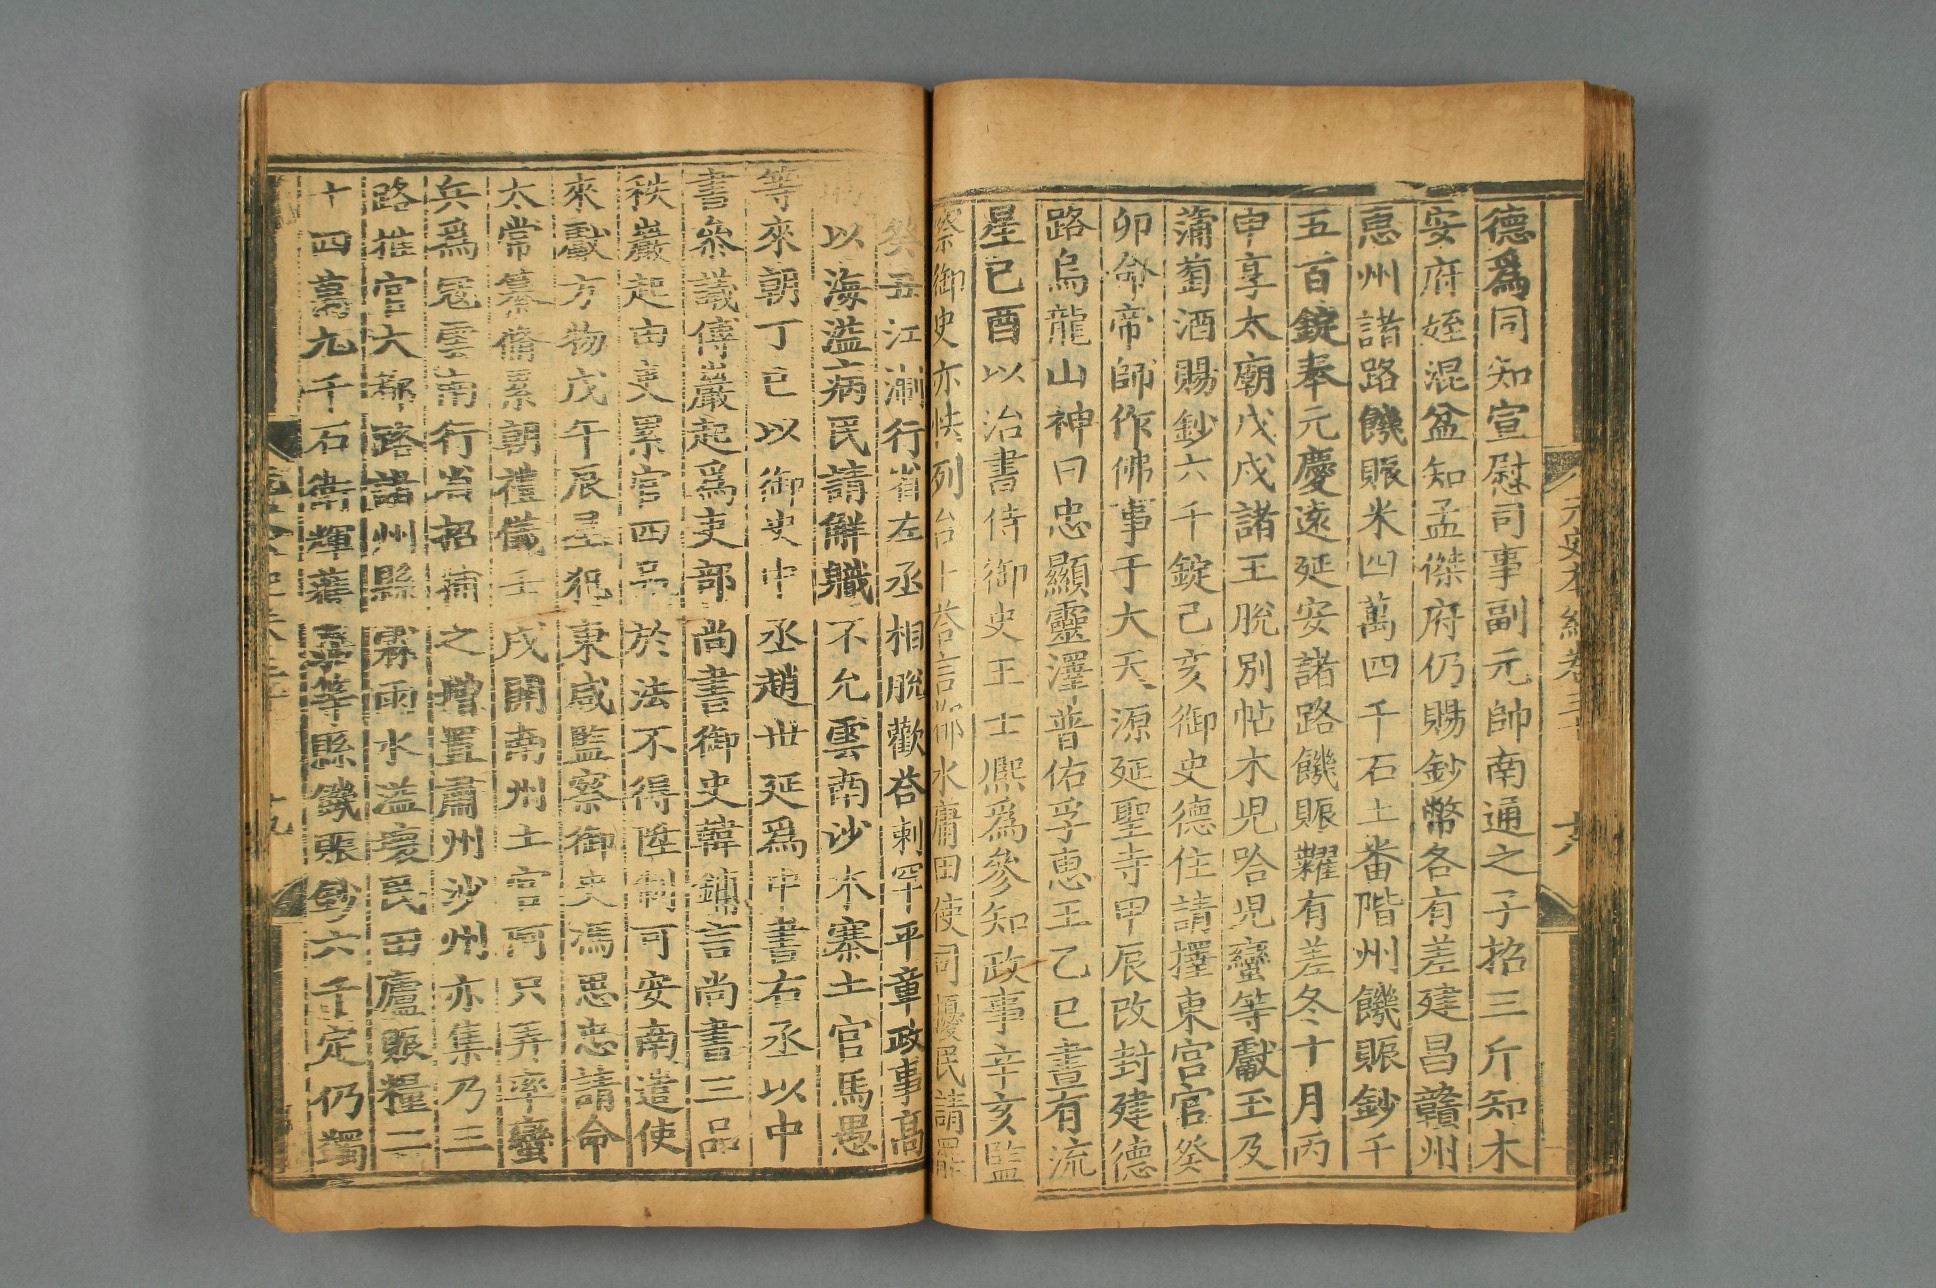 元史本紀卷三十 十八
德爲同知宣慰司事副元帥南通之子招三斤知木
安府姪混盆知孟傑府仍賜鈔幣各有差建昌贛州
惠州諸路饑賑米四萬四千石土番階州饑賑鈔千
五百錠奉元慶遠延安諸路饑賑糶有差冬十月丙
申享太廟戊戌諸王脫別帖木兒哈兒蠻等獻玉及
蒲萄酒賜鈔六千錠己亥御史德住請擇東宮官癸
卯命帝師作佛事于大天源延聖寺甲辰改封建德
路烏龍山神曰忠顯靈澤普佑孚惠王乙巳晝有流
星己酉以治書侍御史王士熙爲參知政事辛亥監
察御史亦怯列台卜荅言都水庸田使司擾民請罷
癸丑江浙行省左丞相脫歡荅剌罕平章政事高
以海溢病民請解職不允雲南沙木寨土官馬愚
等來朝丁巳以御史中丞趙世延爲中書右丞以中
書參議傅巖起爲吏部尚書御史韓鏞言尚書三品
秩巖起由吏累官四品於法不得陞制可安南遣使
來獻方物戊午辰星犯東咸監察御史馮思忠請命
太常纂脩累朝禮儀壬戌開南州土官阿只弄率蠻
兵爲寇雲南行省招捕之增置肅州沙州亦集乃三
路推官大都路諸州縣霖雨水溢壞民田廬賑糧二
十四萬九千石衛輝獲嘉等縣饑賑鈔六千定仍蠲
十九